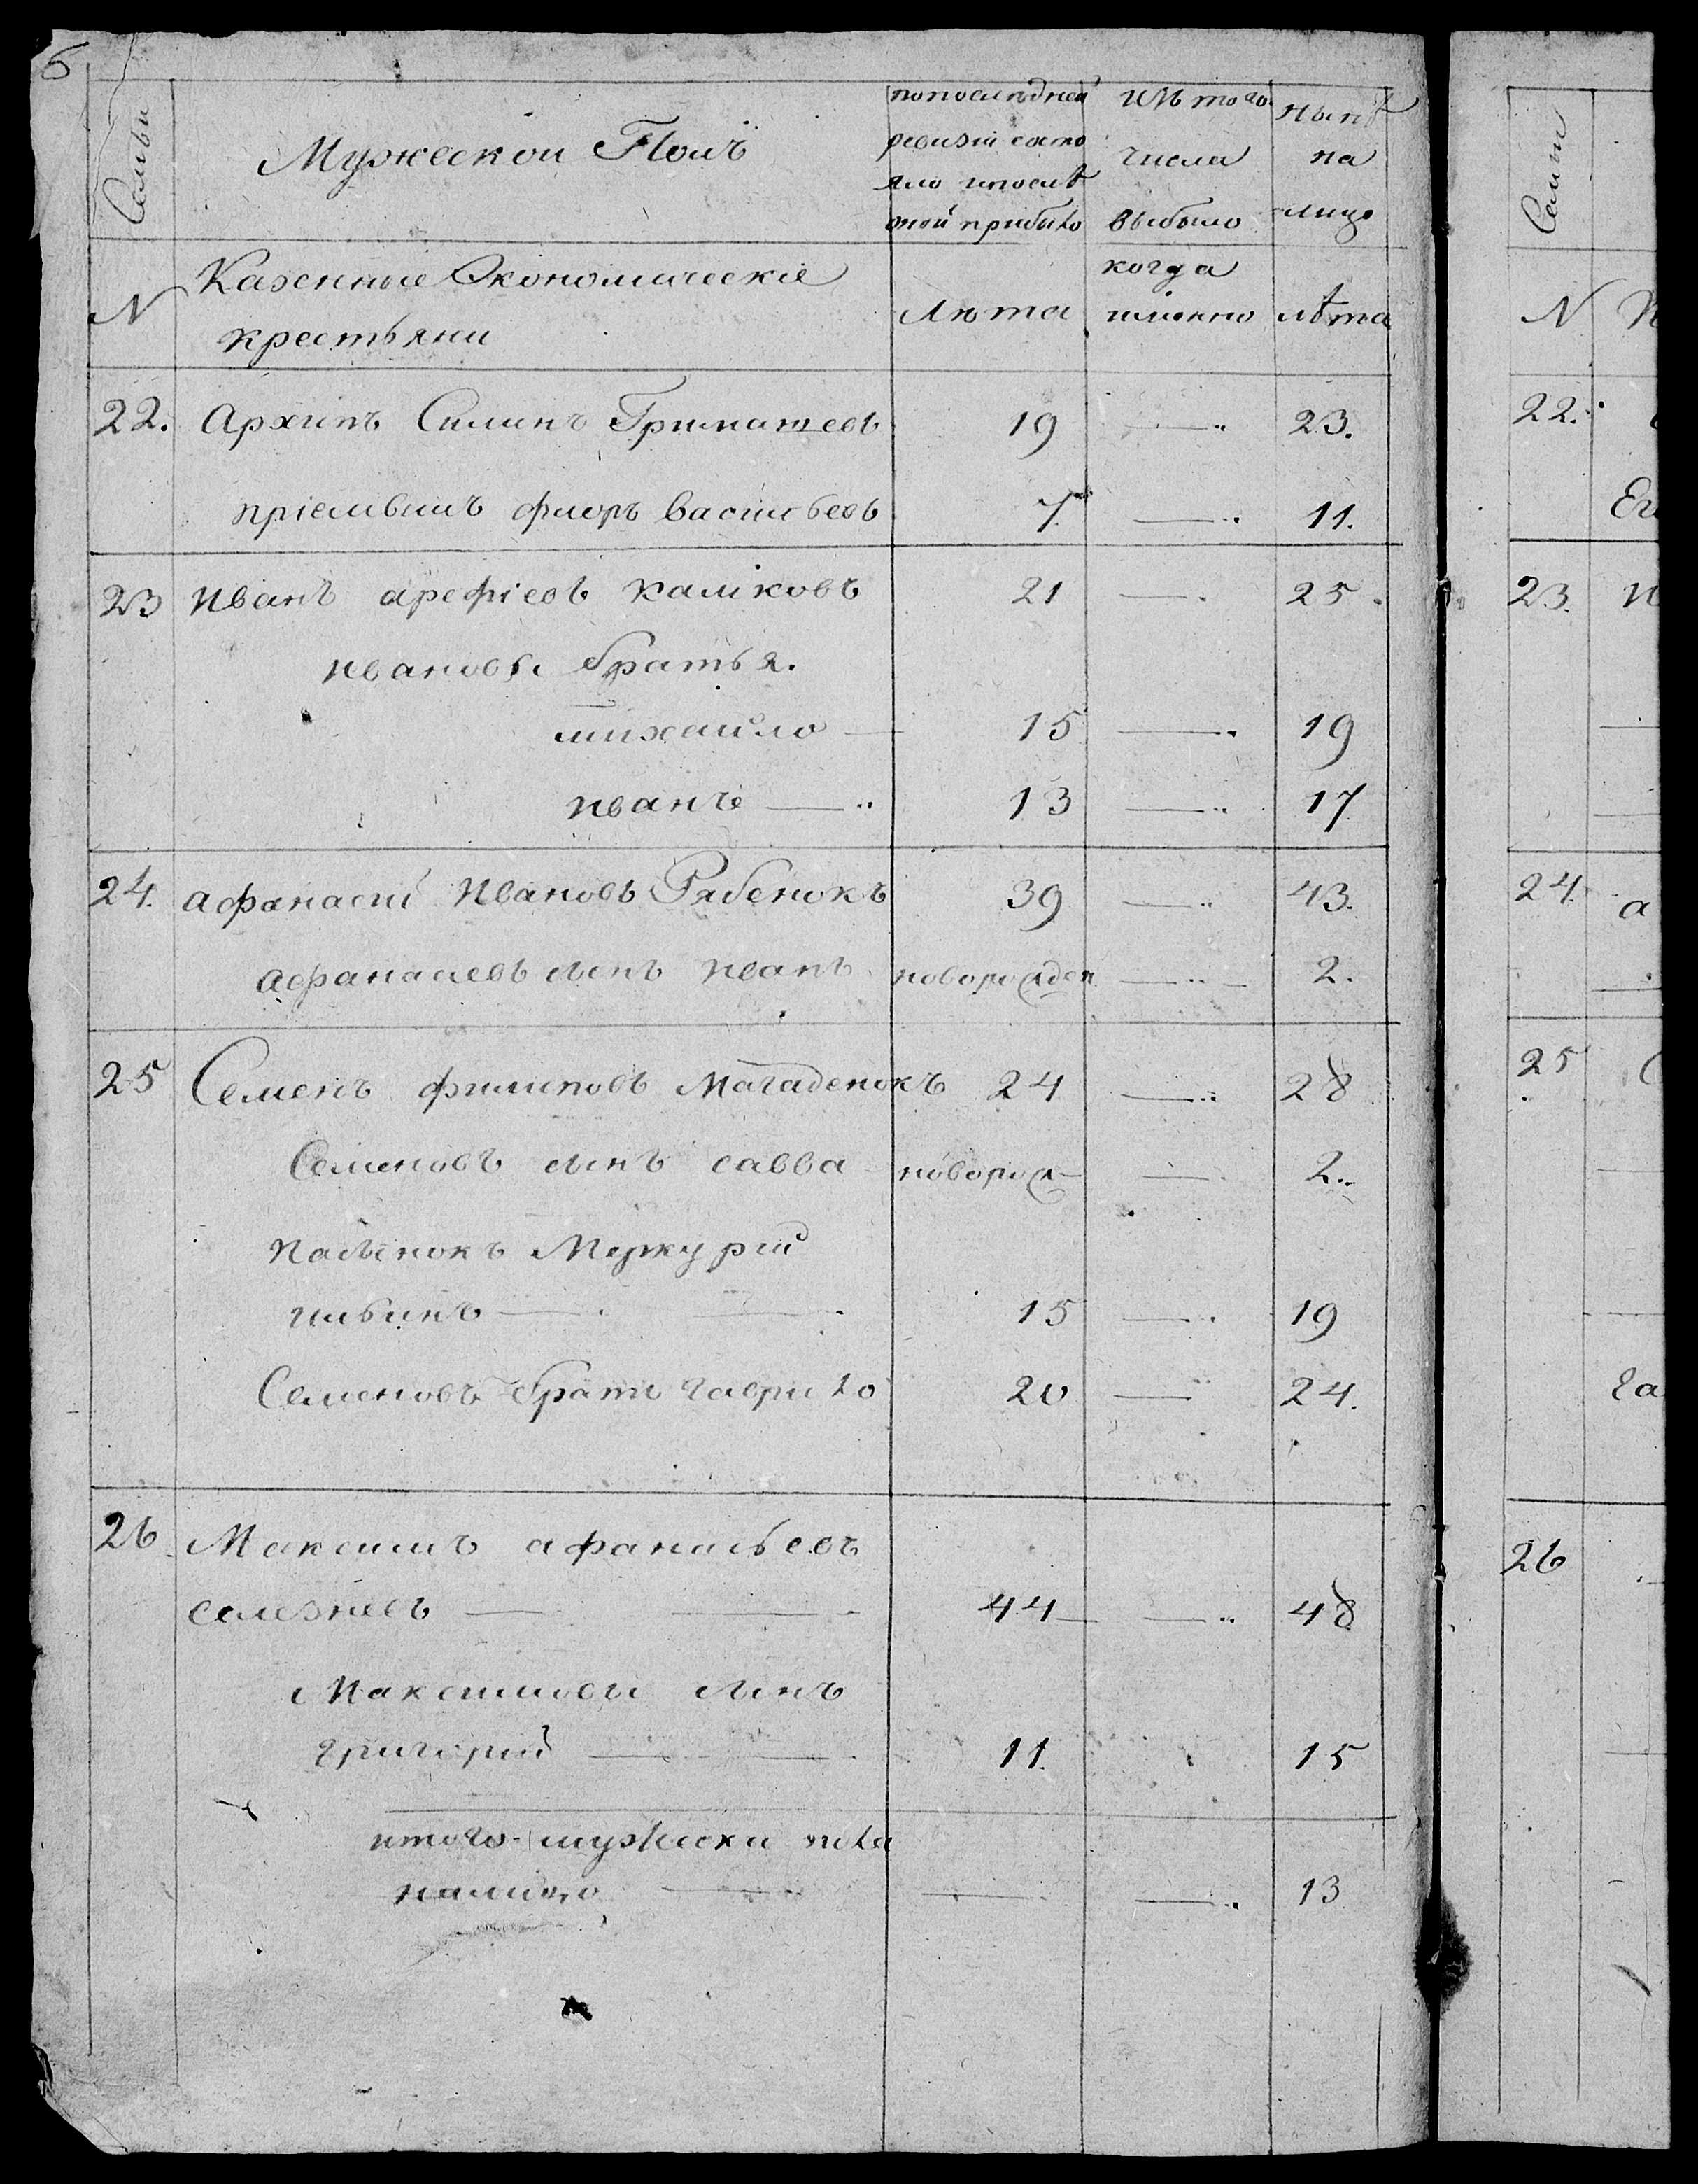 6
Семьи
Мужескои Полъ
попоследней
ревизіи состо
яло ипослѣ
оной прибыло
изъ того
числа
выбыло
нынѣ
на
лицо
N
Казенные Економическіе
крестьяни
Лета
когда
именно
лѣта
22. Архипъ Силинъ 19 —.. 23.
пріемышъ флоръ васильевъ 7 —.. 11.
23 иванъ арефіевъ каліковъ 21 —. 25.
ивановы братья.
михайло — 15 —.. 19
иванъ —.. 13 —.. 17
24. афанасій ивановъ Рябенокъ 39 —.. 43.
афанасиевъ сынъ иванъ новорожден —.. 2.
25 Семенъ филиповъ Магаденокъ 24 —.. 28
Семеновъ сынъ савва новорож —. 2..
Меркурій
ильинъ —. —. 15 —. 19
Семеновъ братъ гаврило 20 — 24.
26. Максимъ афанасьевъ
селезневъ — — 44 —.. 48
Максимовы сынъ
григорій — — 11. 15
итого мужеска пола
налицо — — —.. 13
Семьи
N
22.
23.
24.
25
26